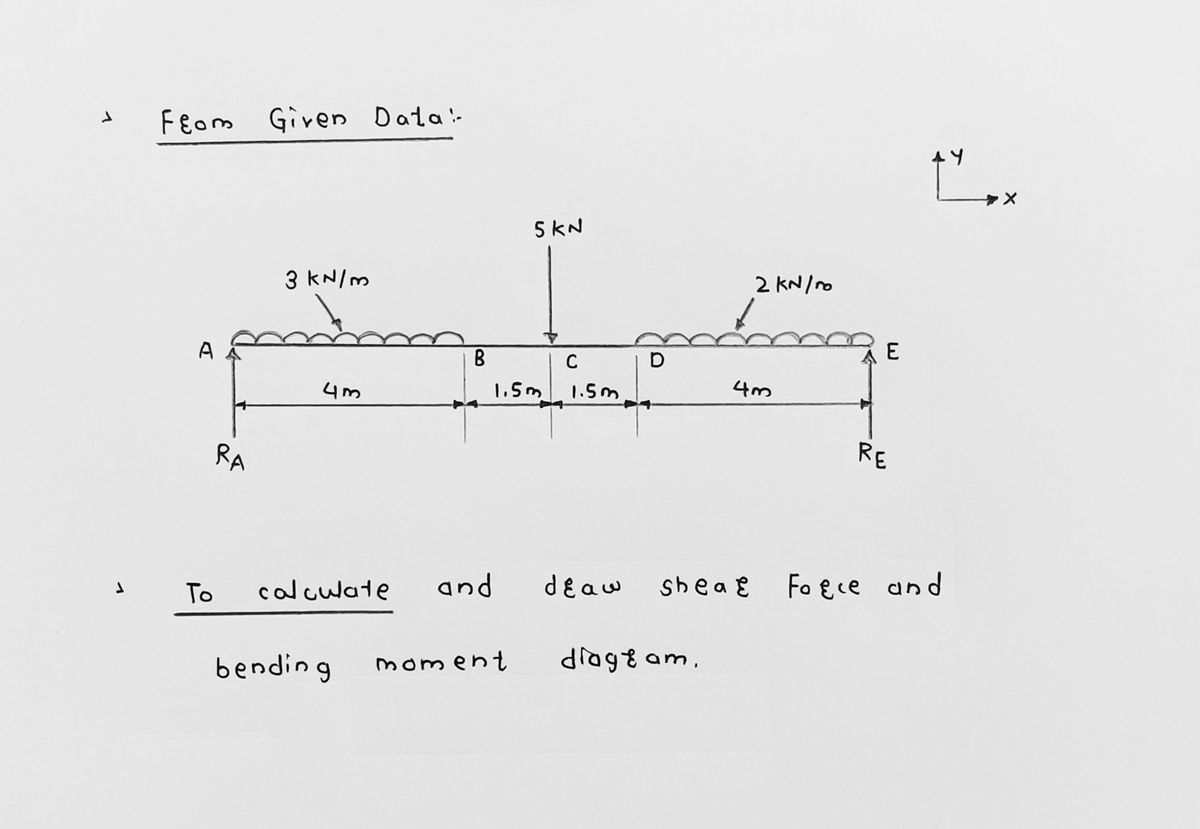 From Given Data:-
Y
X
5 kN
3 kN/m
2 kN/m
A
B
C
D
E
4m
1.5m
1.5m
4m
RA
RE
To calculate and draw shear Force and
bending moment diagram.